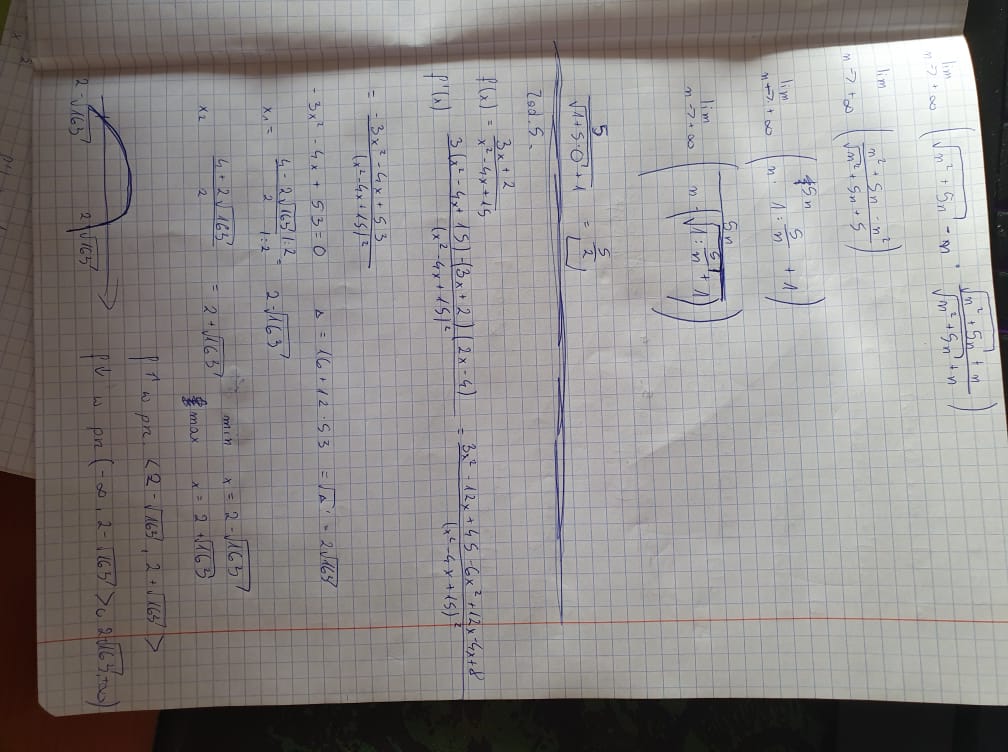 lim n→+∞ (√(n²+5n) - n · (√(n²+5n) + n)/(√(n²+5n) + n))
lim n→+∞ ((n²+5n-n²)/(√(n²+5n+5)))
lim n→+∞ (5n / n · 1 : 5/n + 1)
lim n→+∞ (5n / (n · (√(1 : 5/n + 1))))
5/(√(1+5·0)+1) = 5/2
Zad 5.
f(x) = (3x+2)/(x²-4x+15)
f'(x) 3(x²-4x+15)-(3x+2)(2x-4)/(x²-4x+15)² = 3x²-12x+45-6x²+12x-4x+8/(x²-4x+15)²
= -3x²-4x+53/(x²-4x+15)²
-3x²-4x+53=0 Δ = 16+12·53 = √Δ = 2√163
x₁ = 4-2√163 |:2/2 |:2 = 2-√163 min x = 2-√163
x₂ 4+2√163/2 = 2+√163 max x = 2+√163
f↑ w prz. <2-√163, 2+√163>
2-√163 2√163 f↓ w prz (-∞, 2-√163> ∪ 2√163, +∞)